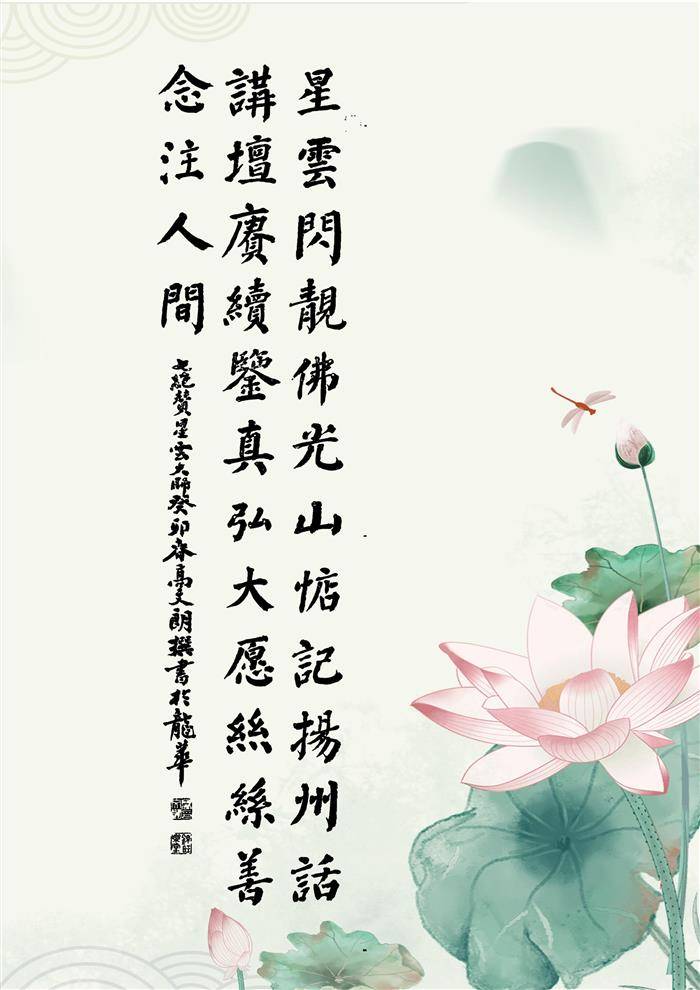 星雲閃靚佛光山惦記揚州話
講壇賡續鑒真弘大愿絲絲善
念注人間
七絕贊星雲大師癸卯春高文朗撰書於龍華